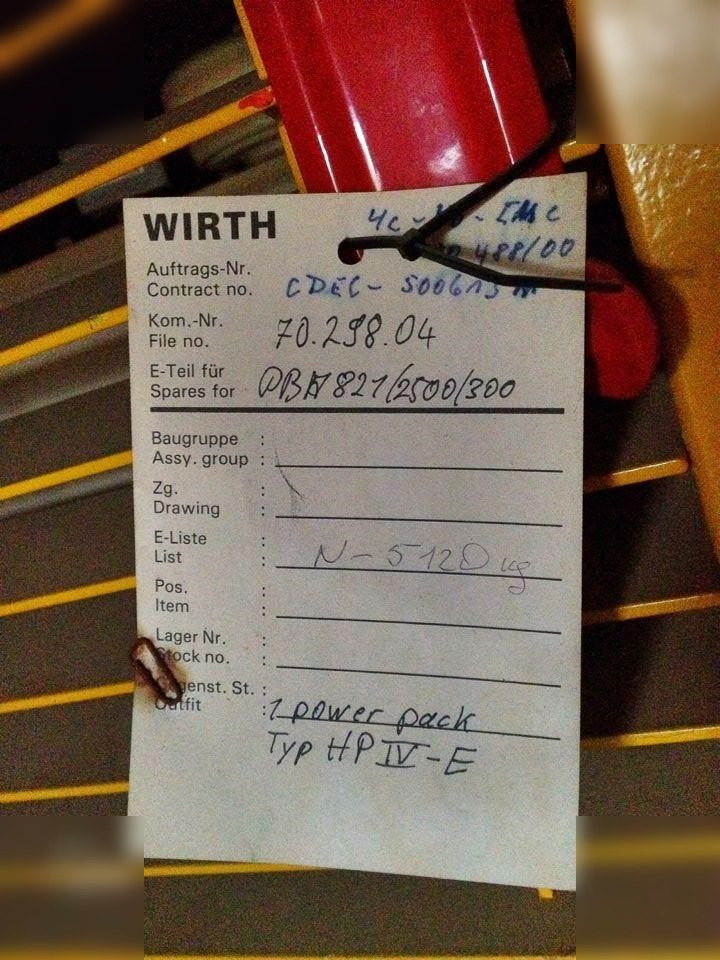 WIRTH
Auftrags-Nr.
Contract no. CDEC-
Kom.-Nr.
File no. 70.298.04
E-Teil für
Spares for PBA 821/2500/300
Baugruppe :
Assy. group :
Zg. :
Drawing :
E-Liste :
List : N-5120
Pos. :
Item :
Lager Nr. :
Stock no. :
St. :
1 power pack
Typ HP IV-E